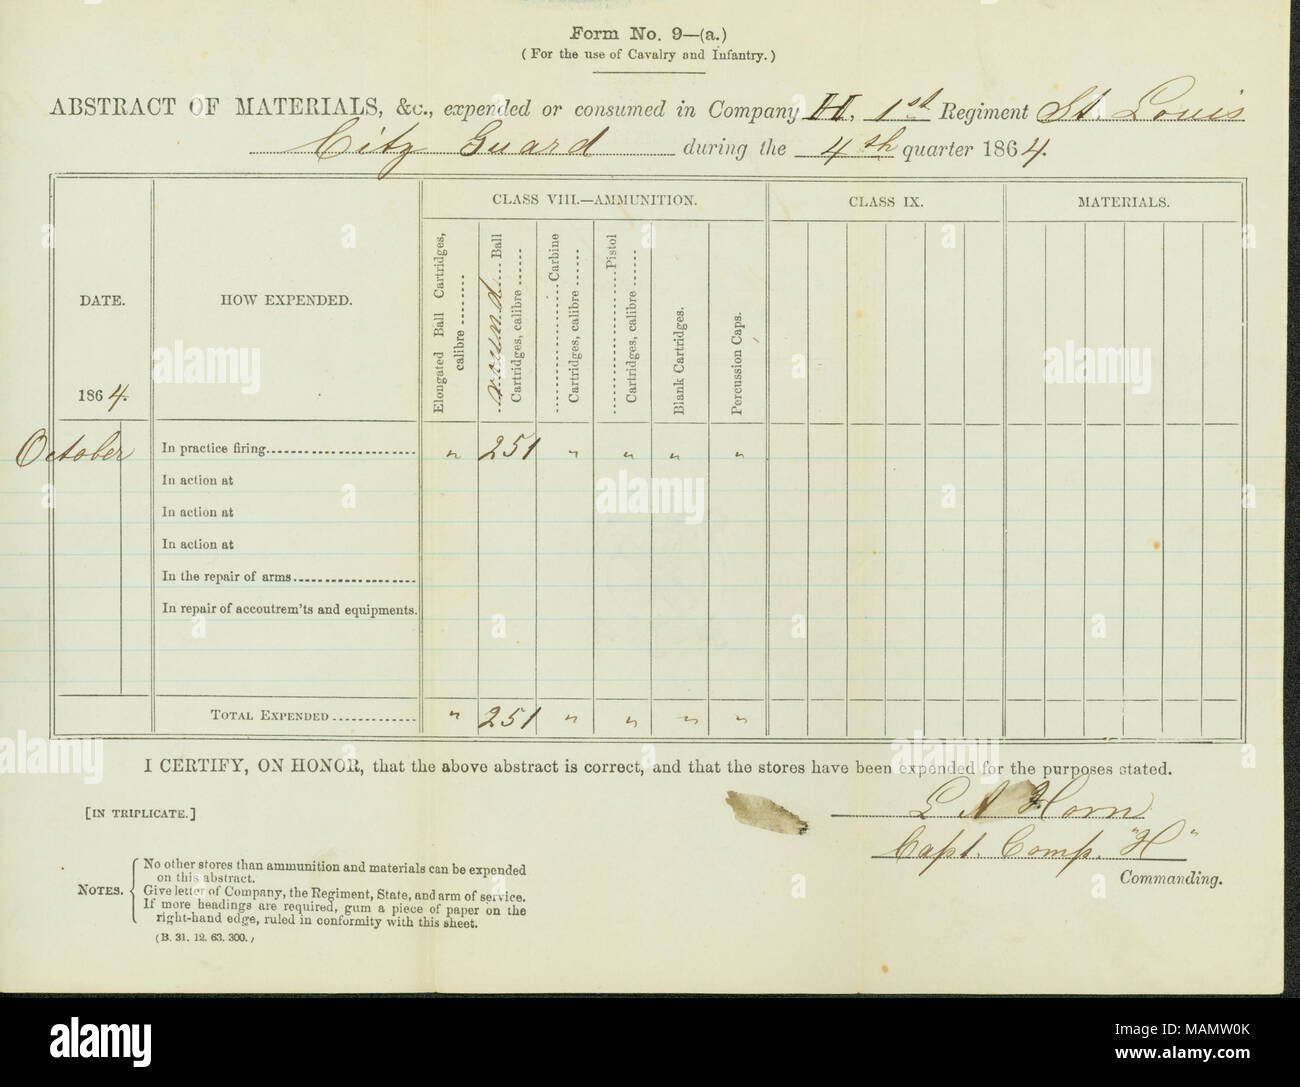 Form No. 9—(a.)
(For the use of Cavalry and Infantry.)
ABSTRACT OF MATERIALS, &c., expended or consumed in Company H, 1st Regiment St. Louis
City Guard during the 4th quarter 1864.
DATE.
HOW EXPENDED.
CLASS VIII.—AMMUNITION.
CLASS IX.
MATERIALS.
Elongated Ball Cartridges,
calibre ........
...round...Ball
Cartridges, calibre ......
............Carbine
Cartridges, calibre ......
............Pistol
Cartridges, calibre ......
Blank Cartridges.
Percussion Caps.
1864.
October In practice firing........................ " 251 " " " "
In action at
In action at
In action at
In the repair of arms....................
In repair of accoutrem'ts and equipments.
TOTAL EXPENDED.............. " 251 " " " "
I CERTIFY, ON HONOR, that the above abstract is correct, and that the stores have been expended for the purposes stated.
L A Horn
Capt. Comp. "H"
Commanding.
[IN TRIPLICATE.]
NOTES.
No other stores than ammunition and materials can be expended
on this abstract.
Give letter of Company, the Regiment, State, and arm of service.
If more headings are required, gum a piece of paper on the
right-hand edge, ruled in conformity with this sheet.
(B. 31. 12. 63. 300.)
alamy
alamy
alamy
a
a
a
alamy
alamy
alamy
alamy
Image ID: MAMW0K
www.alamy.com